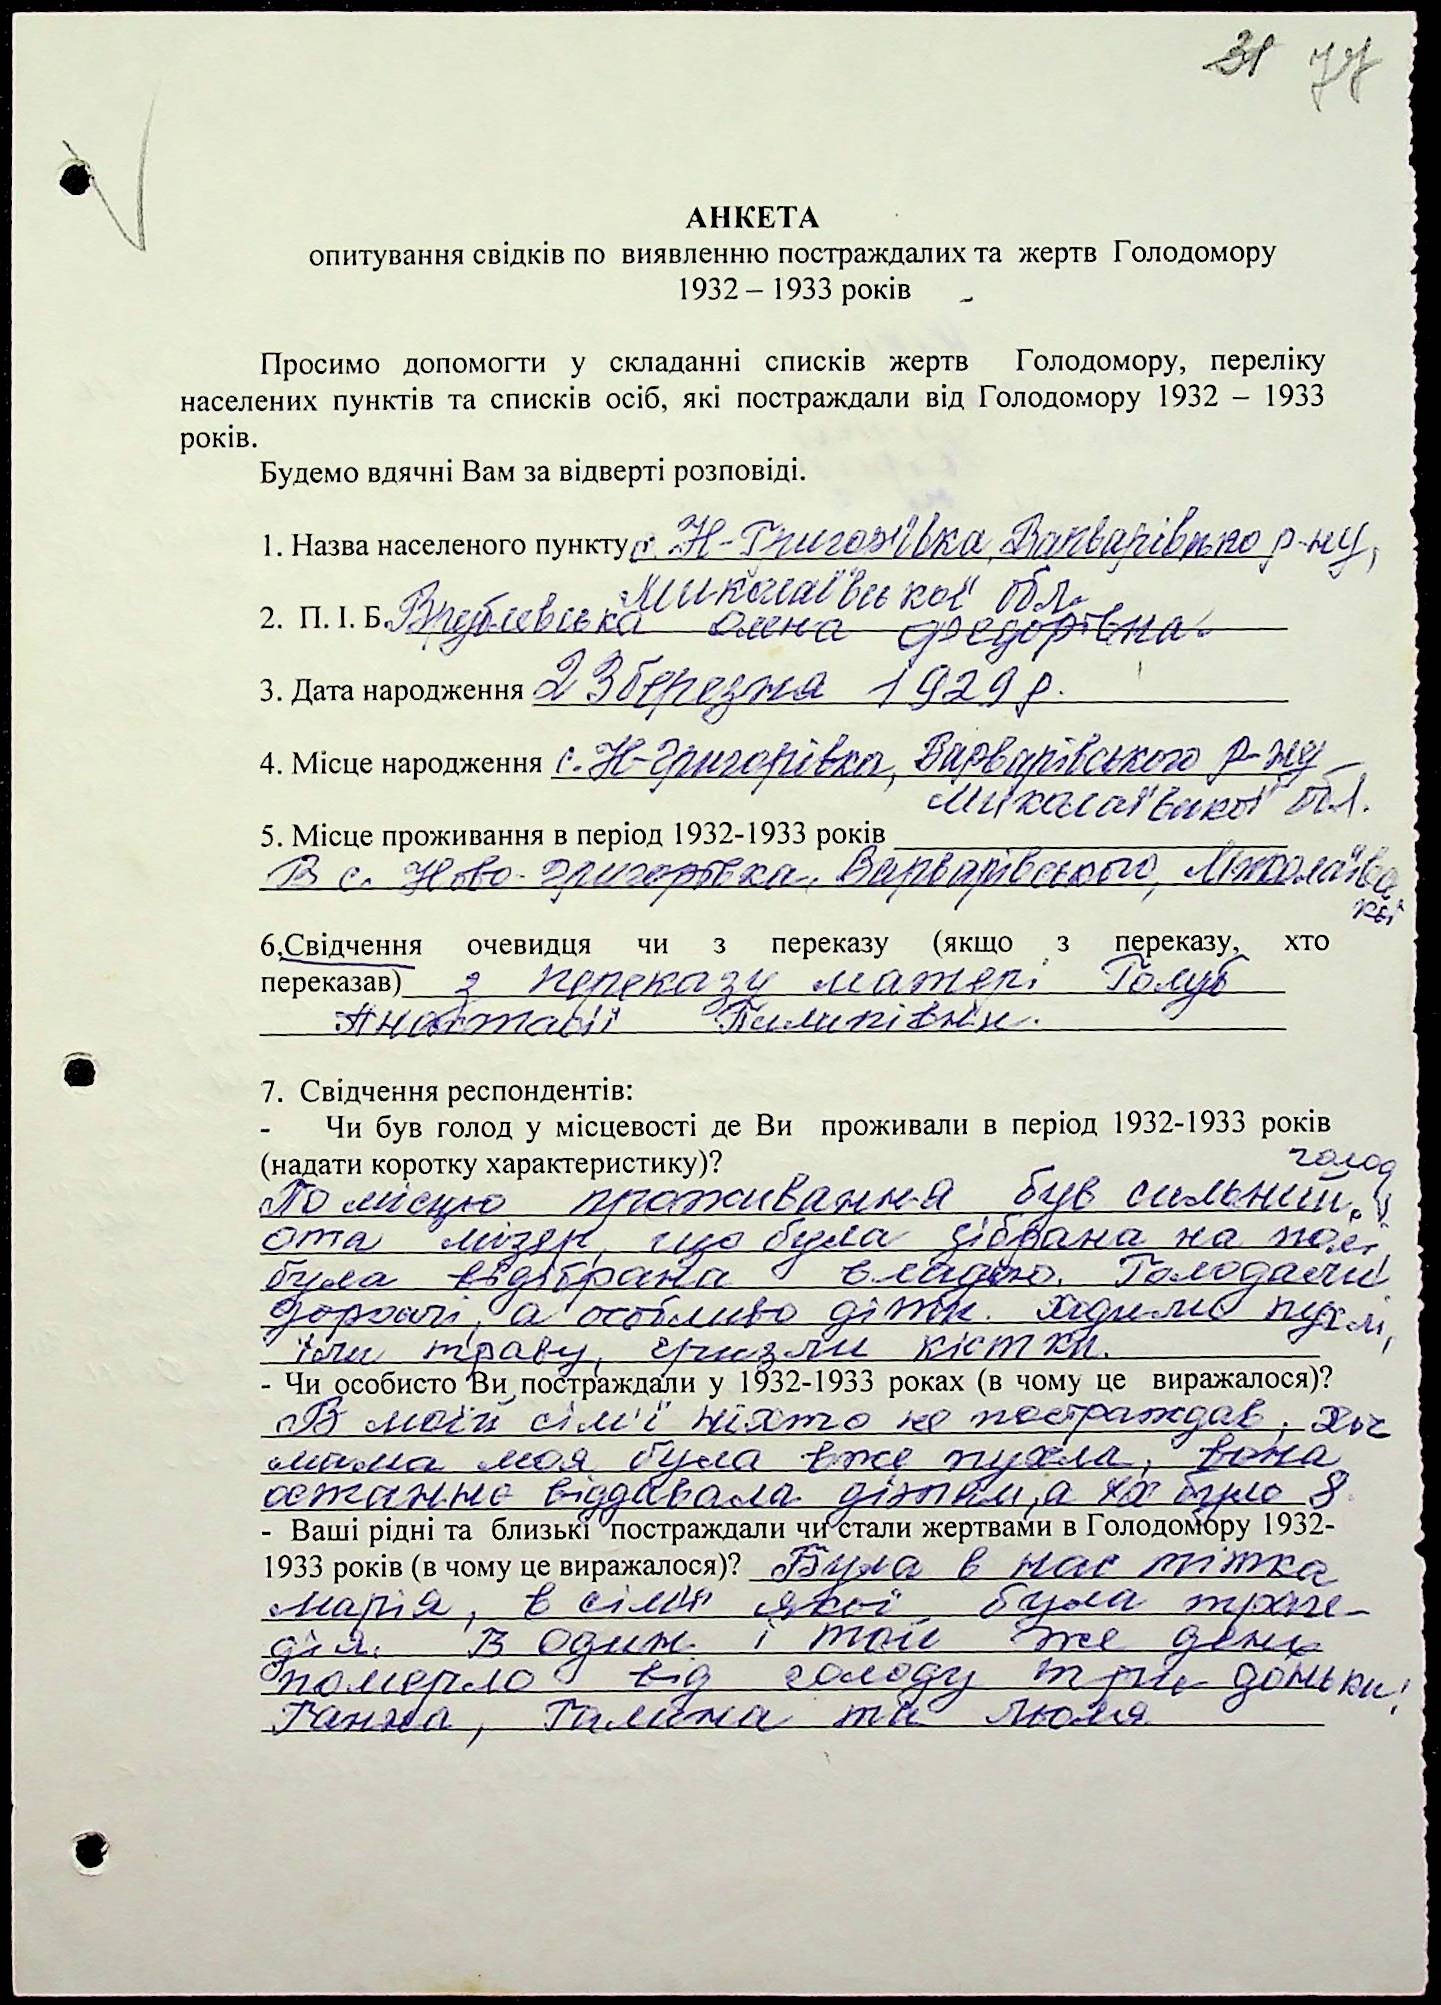 31 77
АНКЕТА
опитування свідків по виявленню постраждалих та жертв Голодомору
1932 – 1933 років
Просимо допомогти у складанні списків жертв Голодомору, переліку
населених пунктів та списків осіб, які постраждали від Голодомору 1932 – 1933
років.
Будемо вдячні Вам за відверті розповіді.
1. Назва населеного пункту с. Н-Григорівка, Варварівського р-ну,
Миколаївської обл.
2. П. І. Б. Врублевська Олена Федорівна
3. Дата народження 23 березня 1929 р.
4. Місце народження с. Н-Григорівка, Варварівського р-ну
Миколаївської обл.
5. Місце проживання в період 1932-1933 років
В с. Ново-Григорівка, Варварівського, Миколаївсь
кої
6.Свідчення очевидця чи з переказу (якщо з переказу, хто
переказав) з переказу матері Голуб
Анастасії Пилипівни.
7. Свідчення респондентів:
- Чи був голод у місцевості де Ви проживали в період 1932-1933 років
(надати коротку характеристику)?
голод
По місцю проживання був сильний.
ота мізер, що була зібрана на полі,
була відібрана владою. Голодали
дорослі, а особливо діти. Ходили пухлі,
їли траву, гризли кістки.
- Чи особисто Ви постраждали у 1932-1933 роках (в чому це виражалося)?
В моїй сім'ї ніхто не постраждав, хоч
мама моя була вже пухла, вона
останнє віддавала дітям, а їх було 8.
- Ваші рідні та близькі постраждали чи стали жертвами в Голодомору 1932-
1933 років (в чому це виражалося)? Була в нас тітка
Марія, в сім'ї якої була траге-
дія. В один і той же день
померло від голоду три доньки:
Ганна, Галина та Льоля